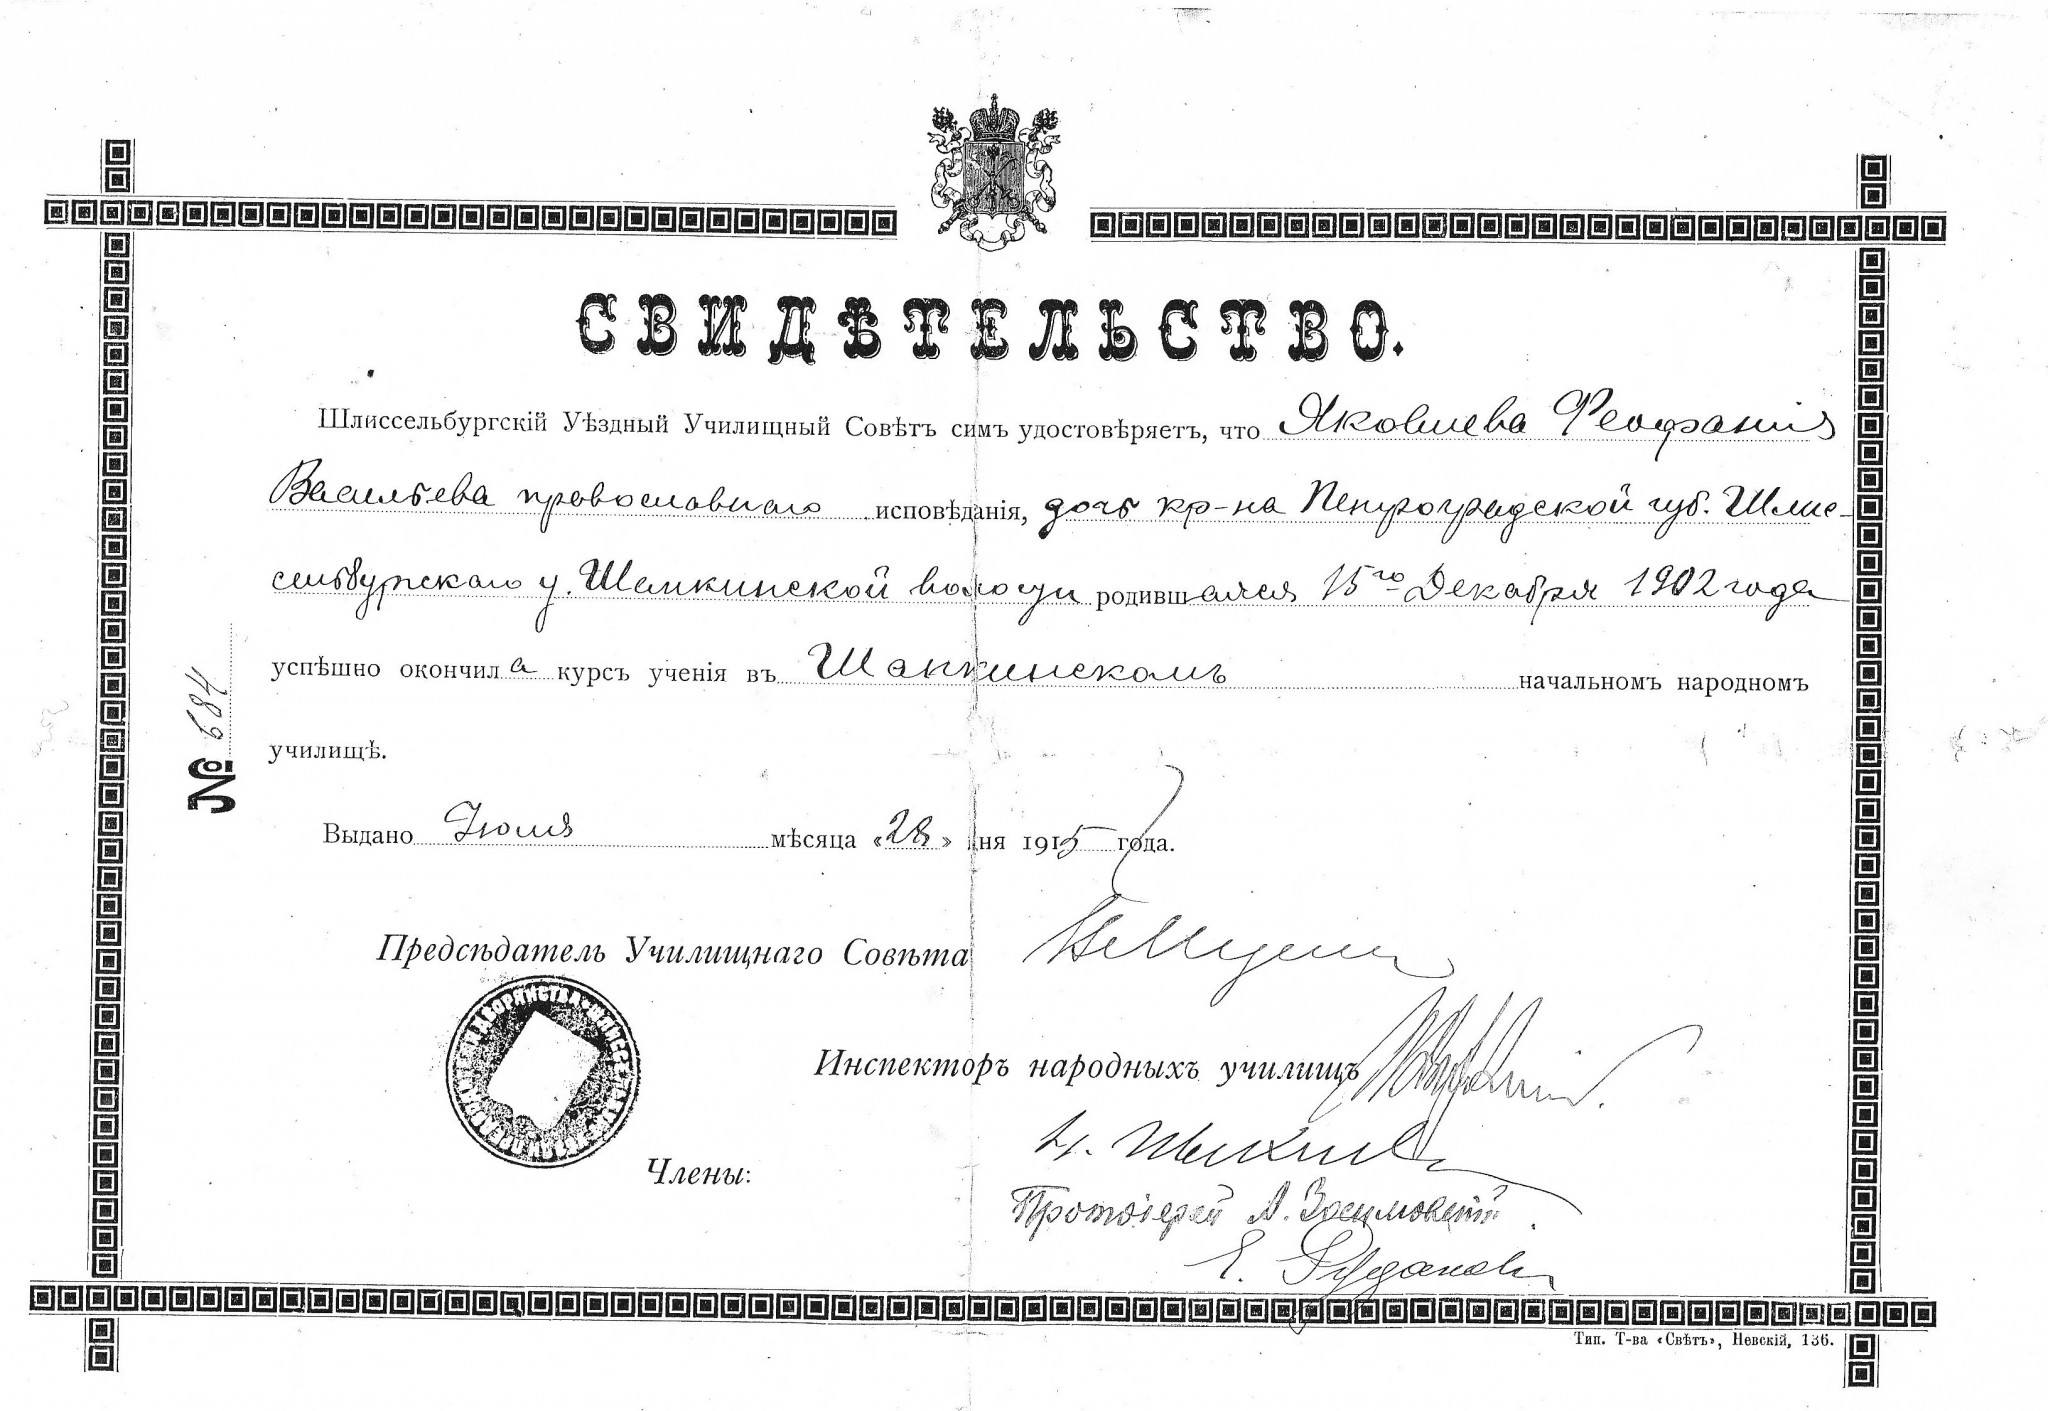 СВИДѢТЕЛЬСТВО.
Шлиссельбургскій Уѣздный Училищный Совѣтъ симъ удостовѣряетъ, что Яковлева Феофанія
Васильева православнаго исповѣданія, дочь кр-на Петроградской губ. Шлис-
сельбургскаго у. Шапкинской волости родившаяся 15го Декабря 1902 года
успѣшно окончила курсъ ученія въ Шапкинскомъ начальномъ народномъ
училищѣ.
№ 684
Выдано Іюля мѣсяца «28» дня 1915 года.
Предсѣдатель Училищнаго Совѣта
Инспекторъ народныхъ училищъ
Члены:
Протоіерей А. Зосимовскій.
Е. Рудаковъ
Тип. Т-ва «Свѣтъ», Невскій, 136.